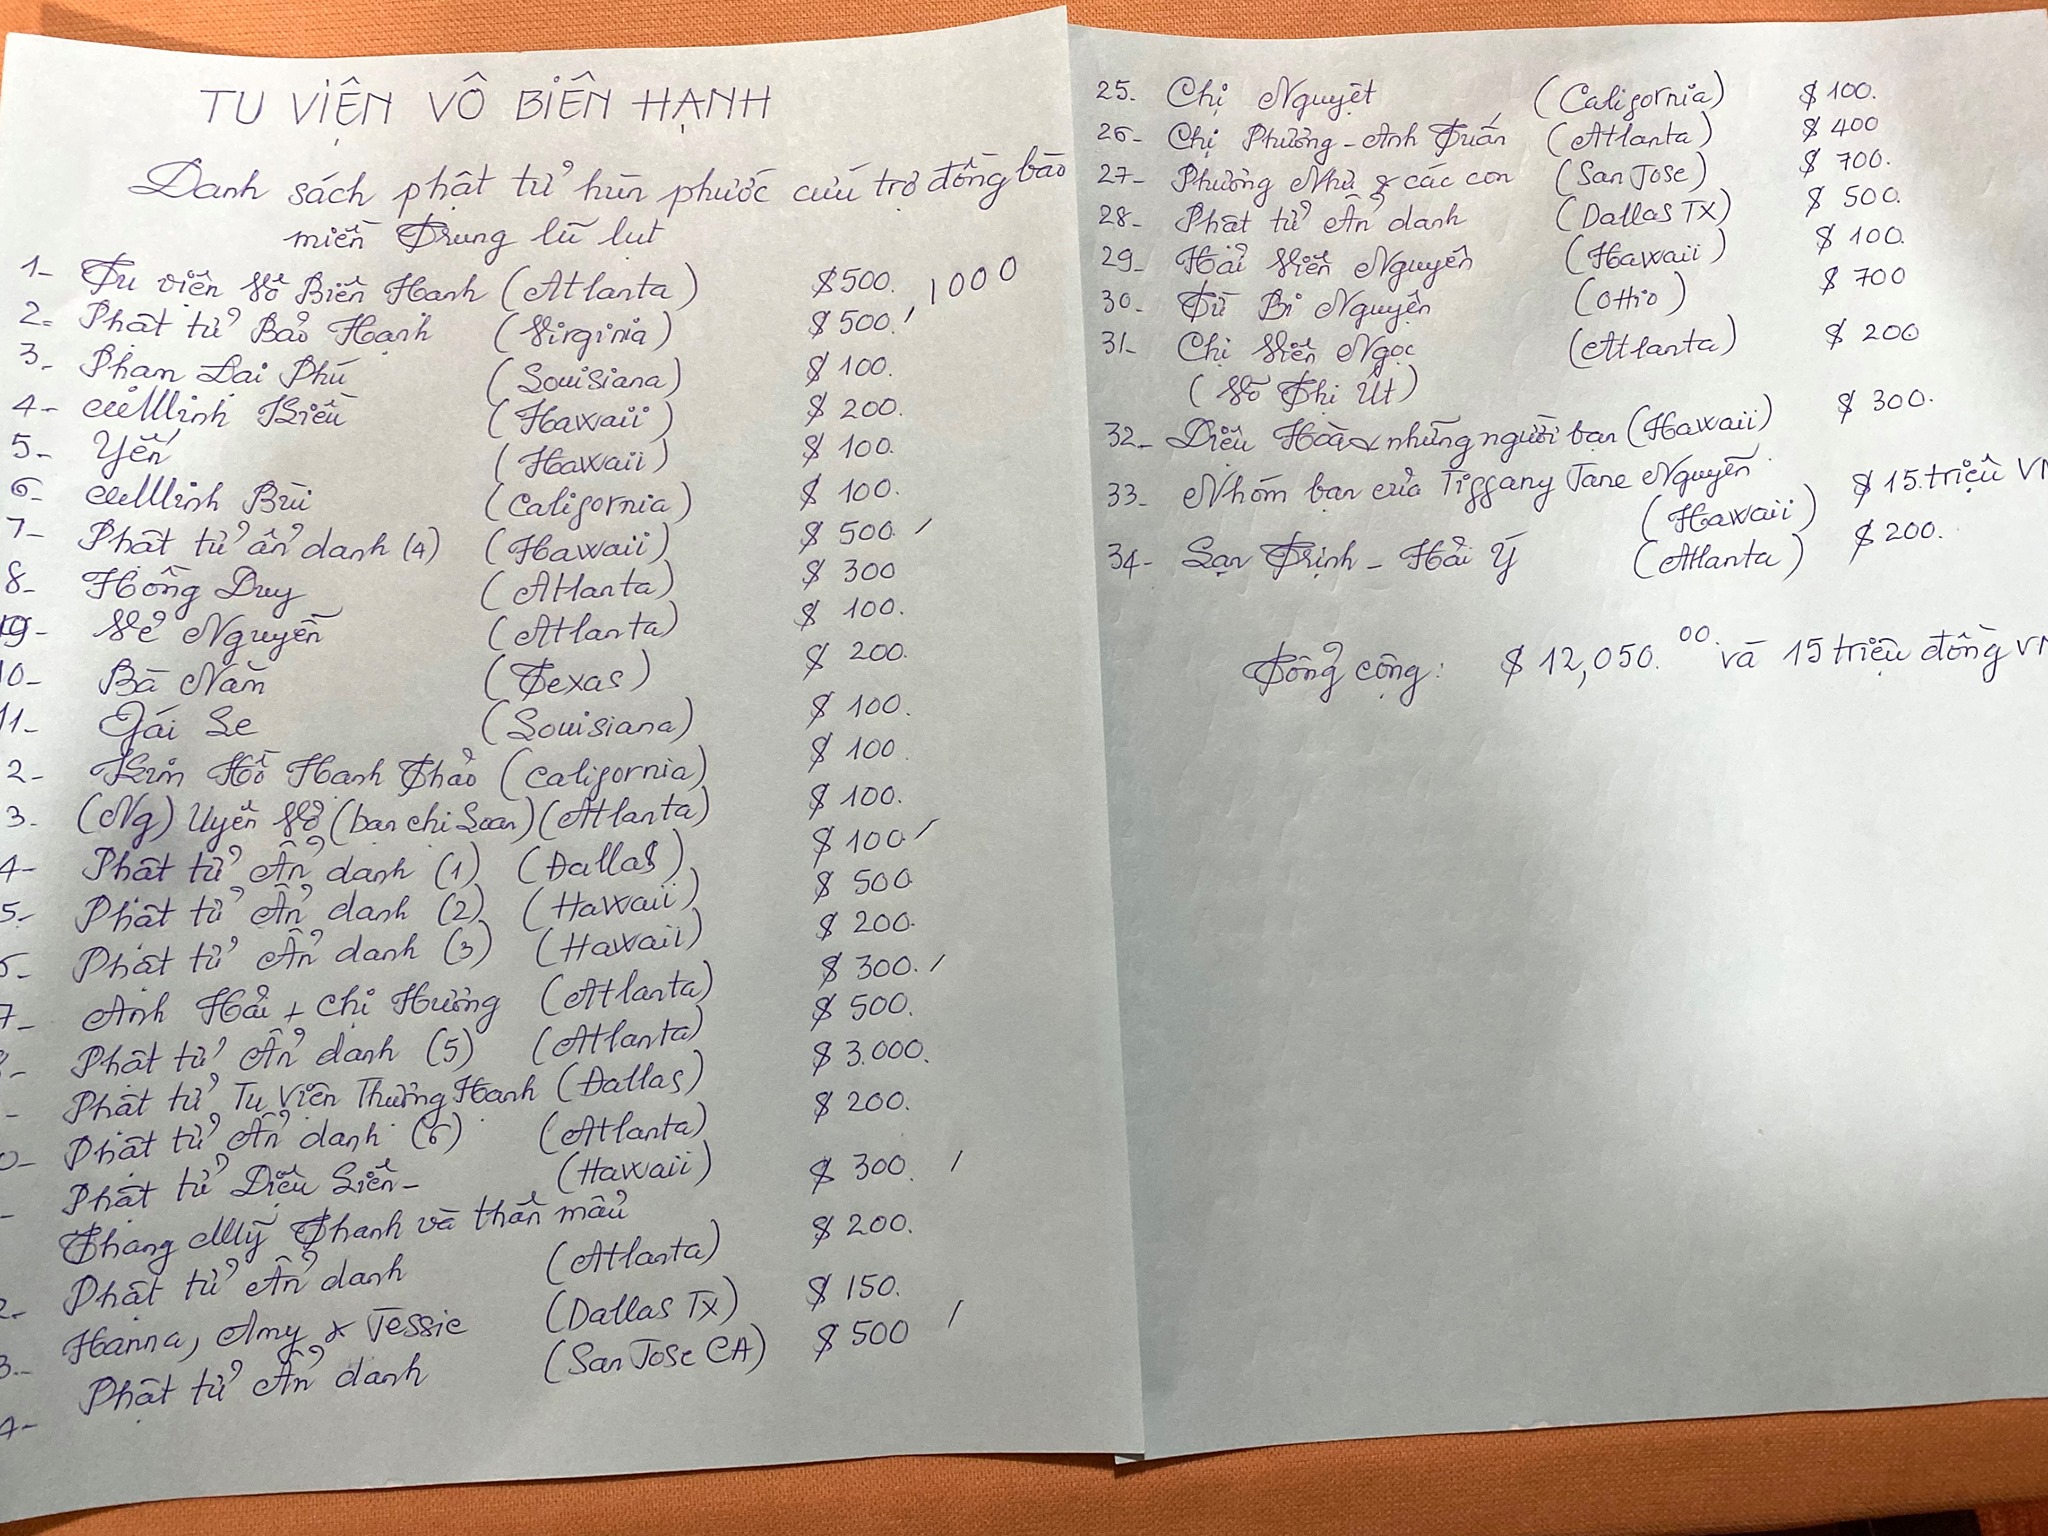 TU VIỆN VÔ BIÊN HẠNH
Danh sách phật tử hùn phước cứu trợ đồng bào
miền Trung lũ lụt
1- Tu viện Vô Biên Hạnh (Atlanta) $500. 1000
2- Phật tử Bảo Hạnh (Virginia) $500.
3- Phạm Đại Phú (Louisiana) $100.
4- Minh Kiều (Hawaii) $200.
5- Yến (Hawaii) $100.
6- Minh Bùi (California) $100.
7- Phật tử ẩn danh (4) (Hawaii) $500.
8- Hồng Duy (Atlanta) $300
9- Vẻ Nguyễn (Atlanta) $100.
10- Bà Năm (Texas) $200.
11- Gái Le (Louisiana) $100.
2- Kim Hồ Hạnh Thảo (California) $100
3- (Ng) Uyên Võ (bạn chị Loan) (Atlanta) $100.
4- Phật tử Ẩn danh (1) (Dallas) $100.
5- Phật tử Ẩn danh (2) (Hawaii) $500
6- Phật tử Ẩn danh (3) (Hawaii) $200.
7- Anh Hải + Chị Hương (Atlanta) $300.
8- Phật tử Ẩn danh (5) (Atlanta) $500.
- Phật tử Tu Viện Thường Hạnh (Dallas) $3.000.
0- Phật tử Ẩn danh (6) (Atlanta) $200.
- Phật tử Diệu Liên - (Hawaii) $300
Thang Mỹ Thanh và thân mẫu
2- Phật tử Ẩn danh (Atlanta) $200.
3- Hanna, Amy & Jessie (Dallas TX) $150.
4- Phật tử Ẩn danh (San Jose CA) $500
25. Chị Nguyệt (California) $100.
26- Chị Phương - Anh Tuấn (Atlanta) $400
27- Phương Như & các con (San Jose) $700.
28- Phật tử Ẩn danh (Dallas TX) $500.
29- Hải Viên Nguyễn (Hawaii) $100.
30. Từ Bi Nguyện (Ohio) $700
31- Chị Viên Ngọc (Atlanta) $200
(Võ Thị Út)
32- Diệu Hoà & những người bạn (Hawaii) $300.
33- Nhóm bạn của Tiffany Jane Nguyễn $15 triệu VN
(Hawaii)
34- Lan Trịnh - Hải Ý (Atlanta) $200.
Tổng cộng: $12,050.00 và 15 triệu đồng VN